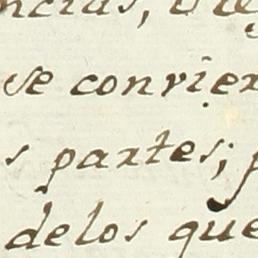 ncias,
se convier
s partes;
delos que